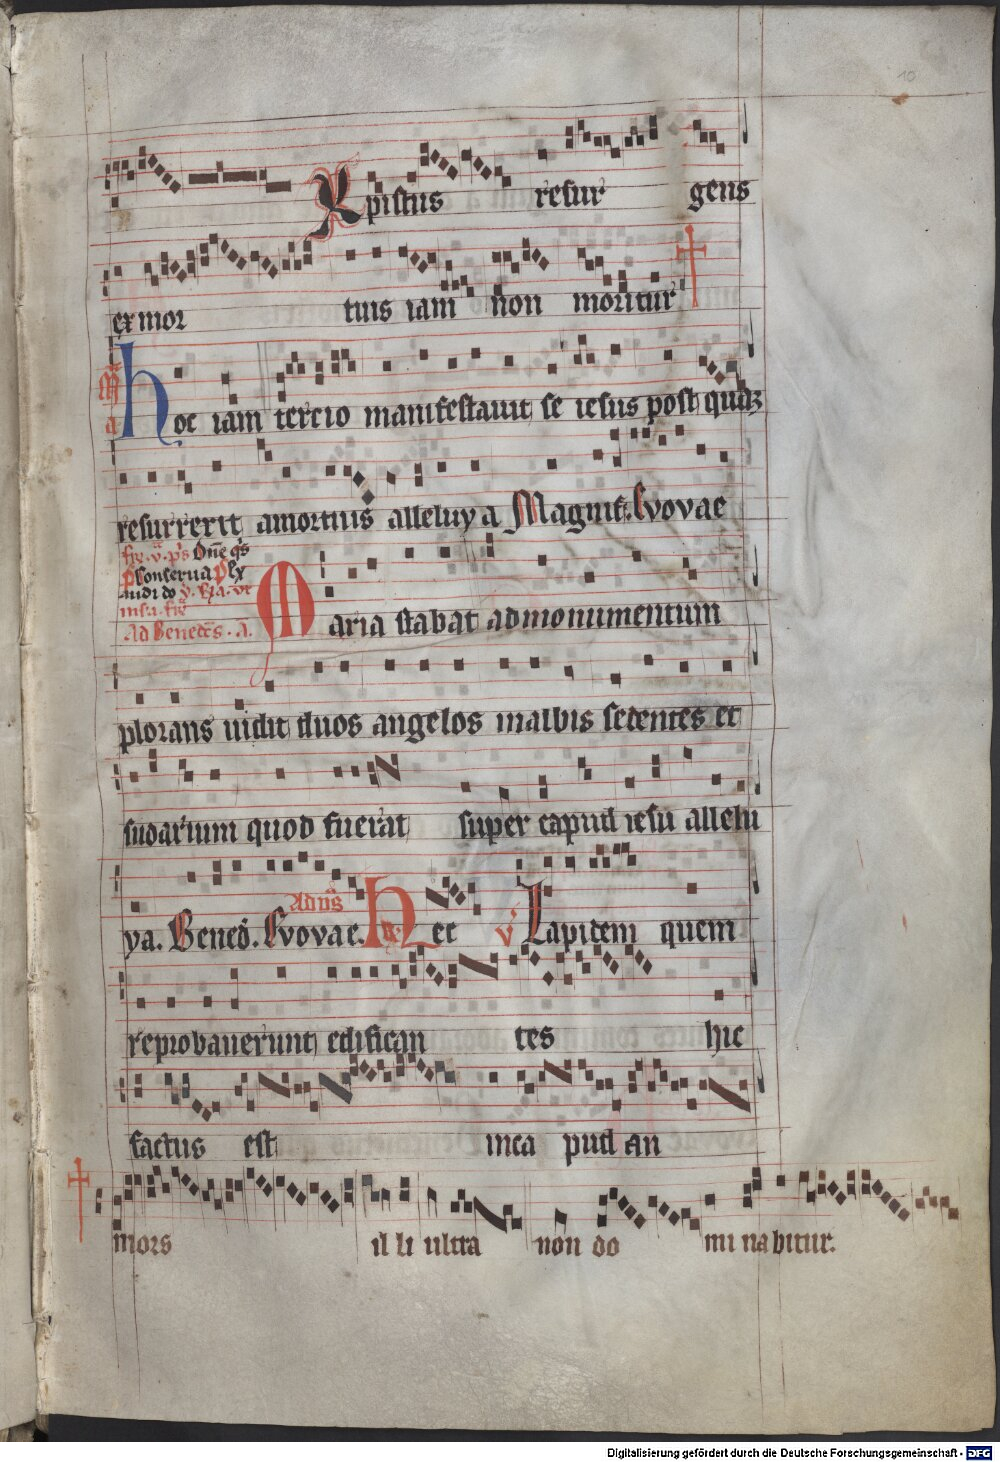 10
Xpistus resur gens
ex mor tuis iam non moritur
hoc iam tercio manifestauit se iesus post quaʒ
resurrexit amortuis alleluya Magnif. Evovae
Dn̄e q̄s
Conserua P Ex
audi do
Ad Benedc̄s . a.
Maria stabat ad monumentum
plorans uidit duos angelos in albis sedentes et
sudarium quod fuerat super capud iesu allelu
ya. Bened̄. Evovae. Ad ūs Hec ℣ Lapidem quem
reprobauerunt edifican tes hic
factus est in ca pud an
mors il li ultra non do mi nabitur.
Digitalisierung gefördert durch die Deutsche Forschungsgemeinschaft - DFG